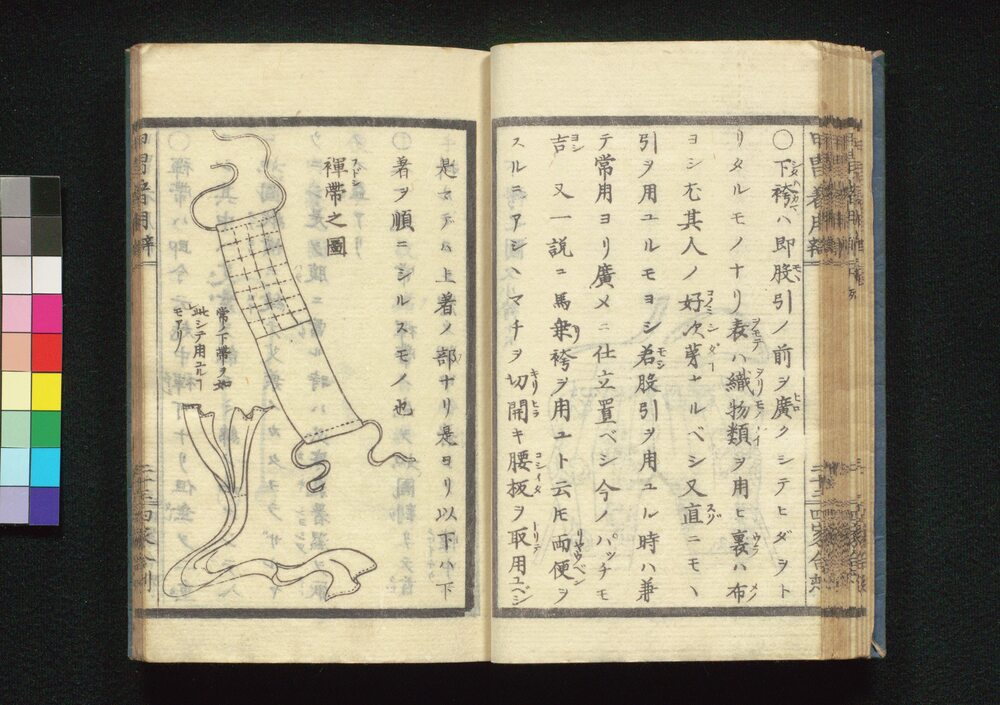 〇下袴ハ即股引ノ前ヲ廣クシテヒダヲト
リタルモノナリ表ハ織物類ヲ用ヒ裏ハ布
ヨシ尤其人ノ好次第ナルベシ又直ニモヽ
引ヲ用ユルモヨシ若股引ヲ用ユル時ハ兼
テ常用ヨリ廣メニ仕立置ベシ今ノパツチモ
吉又一説ニ馬乗袴ヲ用ユト云ドモ両便ヲ
スルニアシヽマチヲ切開キ腰板ヲ取用ユベシ
是マデハ上着ノ部ナリ是ヨリ以下ハ下
著ヲ順ニシルスモノ也
褌帯之圖
常ノ下帯ヲ如
此シテ用ユルー
モアリ